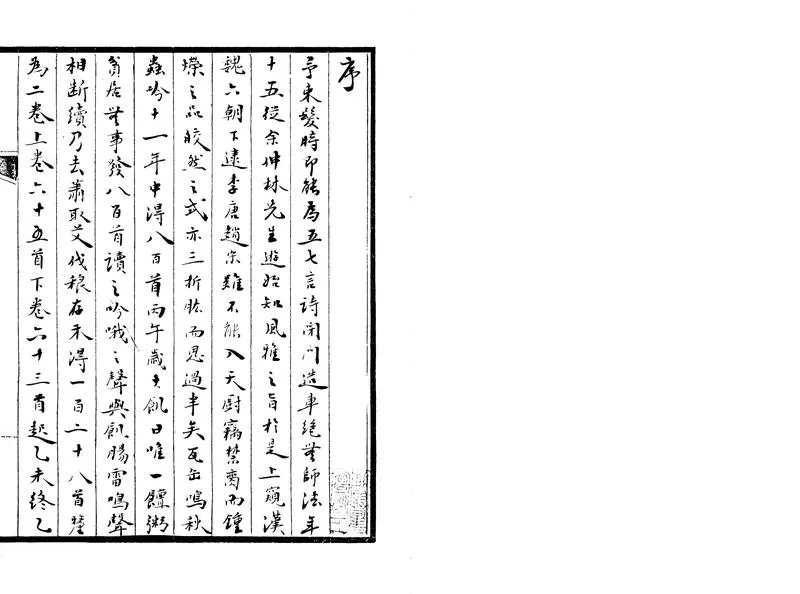 序
予束髮時即能為五七言詩閉門造車絕無師法年
十五從余仲林先生遊始知風雅之旨於是上窺漢
魏六朝下逮李唐趙宋雖不能入天厨竊禁臠而鍾
嶸之品皎然之式亦三折肱而思過半矣瓦缶鳴秋
蟲吟十一年中得八百首丙午歲大飢日唯一饘粥
貧居無事發八百首讀之吟哦之聲與飢腸雷鳴聲
相斷續乃去蕭取艾伐稂存禾得一百二十八首釐
為二卷上卷六十五首下卷六十三首起乙未終乙